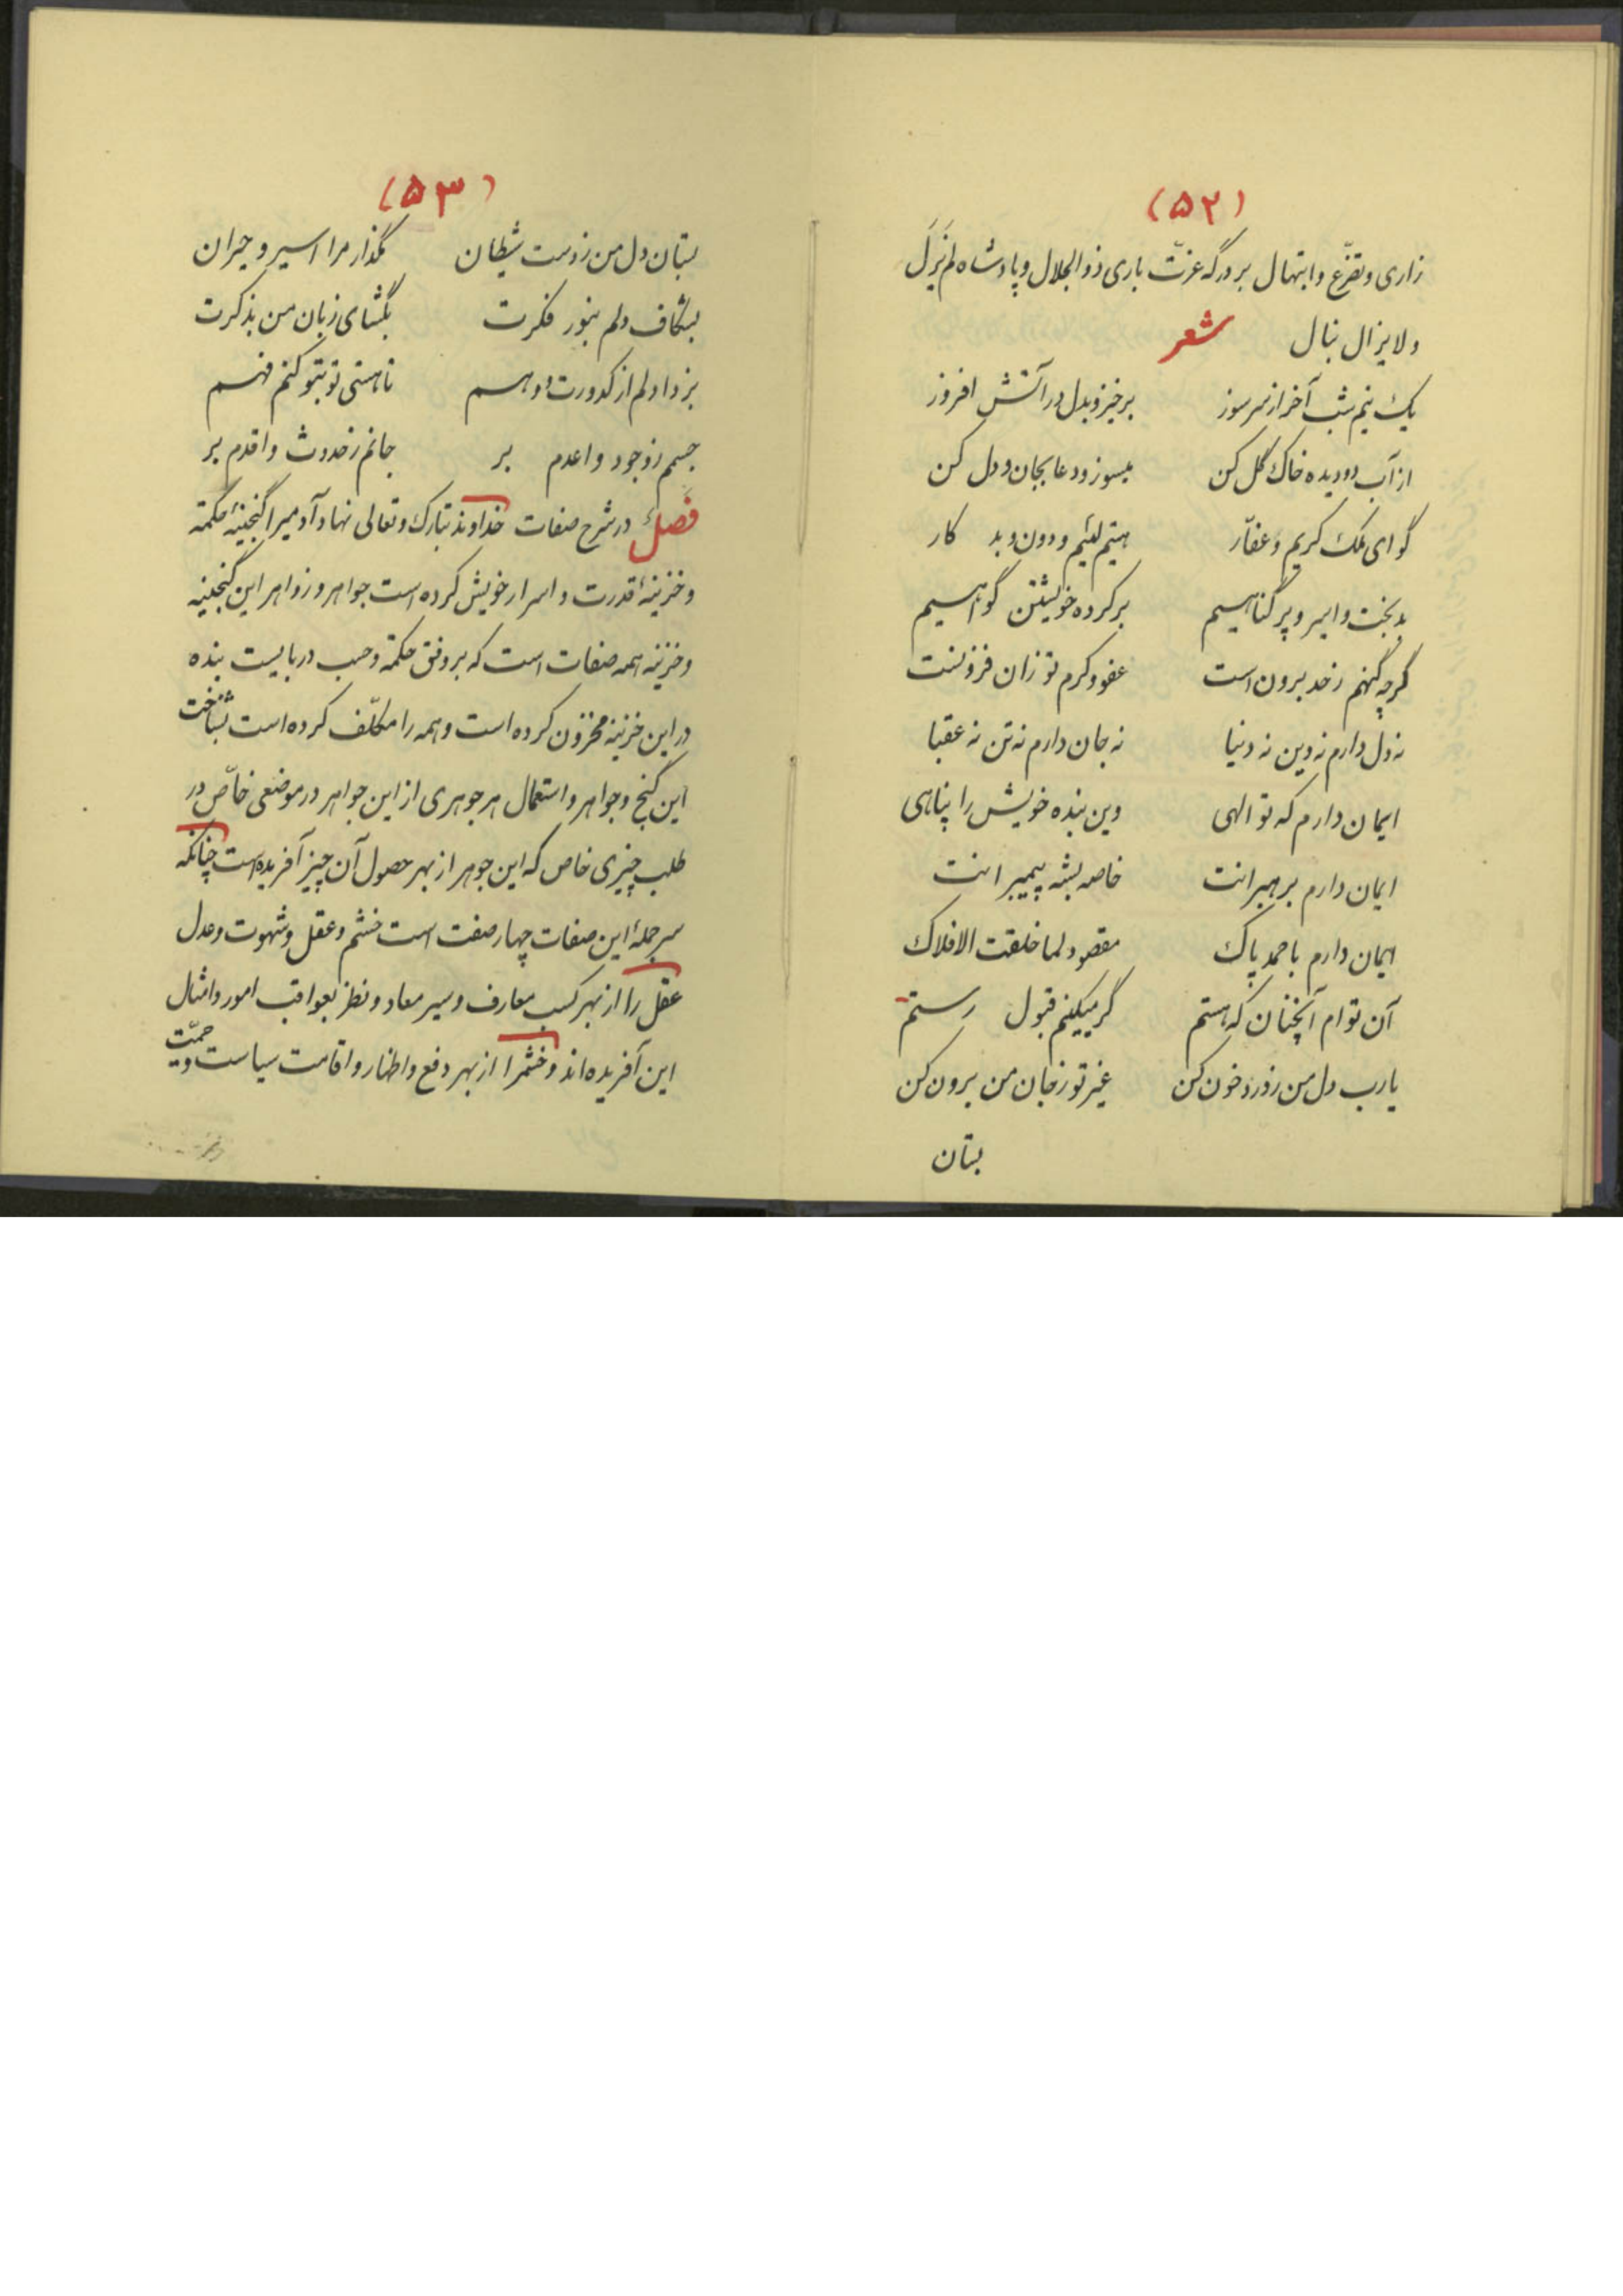 (۵۲)
زاری و تضرّع و ابتهال بر درگه عزّت باری ذوالجلال و پادشاه لم یَزَل
و لایزال بنال شعر
یک نیم شب آخر از سر سوز برخیز و بدل در آتش افروز
از آب دو دیده خاک گل کن میسوز و دعا بجان و دل کن
گو ای ملک کریم و غفّار هستم لئیم و دون و بد کار
بدبخت و اسیر و پر گناهیم بر کرده خویشتن گواهیم
گرچه گنهم ز حد برون است عفو و کرم تو زان فزونست
نه دل دارم نه دین نه دنیا نه جان دارم نه تن نه عقبا
ایمان دارم که تو الهی وین بنده خویش را پناهی
ایمان دارم برهبرانت خاصه بشه پیمبرانت
ایمان دارم باحمد پاک مقصود لما خلقت الافلاک
آن توام آنچنان که هستم گر میکنیم قبول رستم
یارب دل من ز درد خون کن غیر تو ز جان من برون کن
بستان
(۵۳)
بستان دل من ز دست شیطان مگذار مرا اسیر و حیران
بشکاف دلم بنور فکرت بگشای زبان من بذکرت
بزدا دلم از کدورت و وهم تا هستی تو بتو کنم فهم
جسم ز وجود وا عدم بر جانم ز حدوث وا قدم بر
فصل در شرح صفات خداوند تبارک و تعالی نهاد آدمیرا گنجینهٔ حکمة
و خزینهٔ قدرت و اسرار خویش کرده است جواهر و زواهر این گنجینه
و خزینه همه صفات است که بر وفق حکمة و حسب دربایست بنده
در این خزینه مخزون کرده است و همه را مکلّف کرده است بشناخت
این گنج و جواهر و استعمال هر جوهری از این جواهر در موضعی خاصّ در
طلب چیزی خاص که این جوهر از بهر حصول آن چیز آفریده است چنانکه
سر جملهٔ این صفات چهار صفت است خشم و عقل و شهوت و عدل
عقل را از بهر کسب معارف و سیر معاد و نظر بعواقب امور و امثال
این آفریده اند و خشمرا از بهر دفع و اظهار و اقامت سیاست و حمّیت